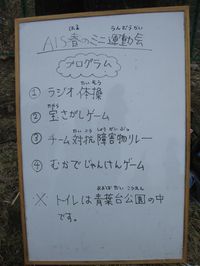 はる うんどうかい
AIS春のミニ運動会
プログラム
たいそう
① ラジオ体操
たから
② 宝さがしゲーム
たいこう しょうがいぶつ
③ チーム対抗障害物リレー
④ むかでじゃんけんゲーム
あおばだいこうえん
※ トイレは青葉台公園の中
です。